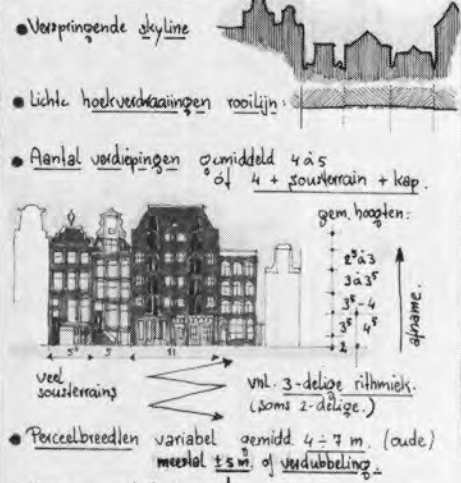 ● Verspringende skyline
● Lichte hoekverdraaiingen rooilijn:
● Aantal verdiepingen gemiddeld 4 à 5
óf 4 + sousterrain + kap.
gem. hoogten:
2⁵ à 3
3 à 3⁵
3⁵ - 4
3⁵ 4⁵
2
afname.
5⁵ 5 11
veel
sousterrains
vnl. 3-delige rithmiek.
(soms 2-delige.)
● Perceelbreedten variabel gemidd. 4 ÷ 7 m. (oude)
meestal ± 5 m. of verdubbeling.